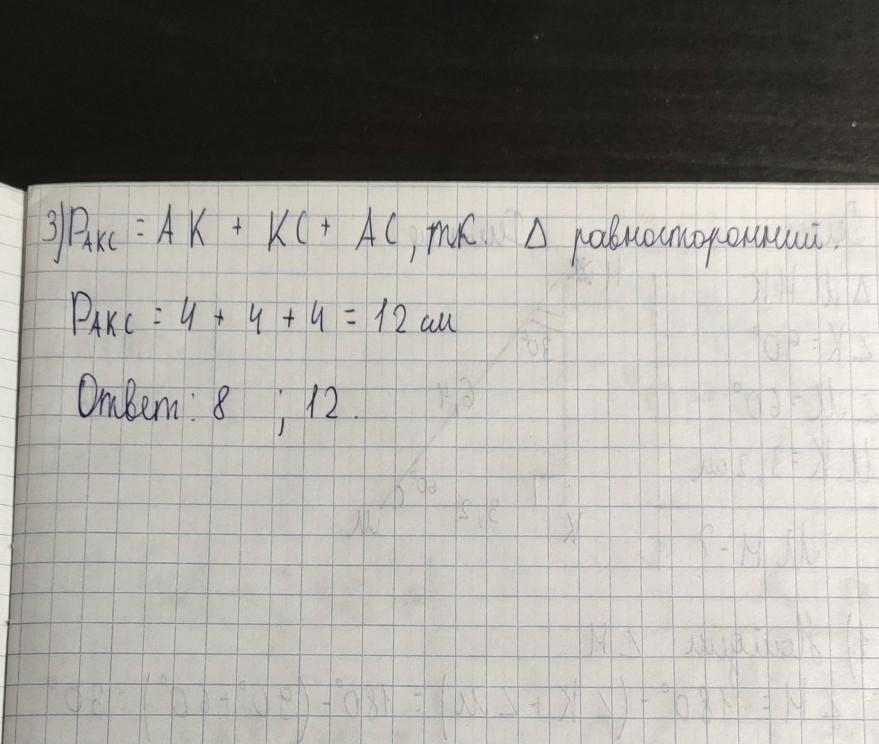 3) P_AKC = AK + KC + AC, тк Δ равносторонний.
P_AKC = 4 + 4 + 4 = 12 см
Ответ: 8 ; 12.